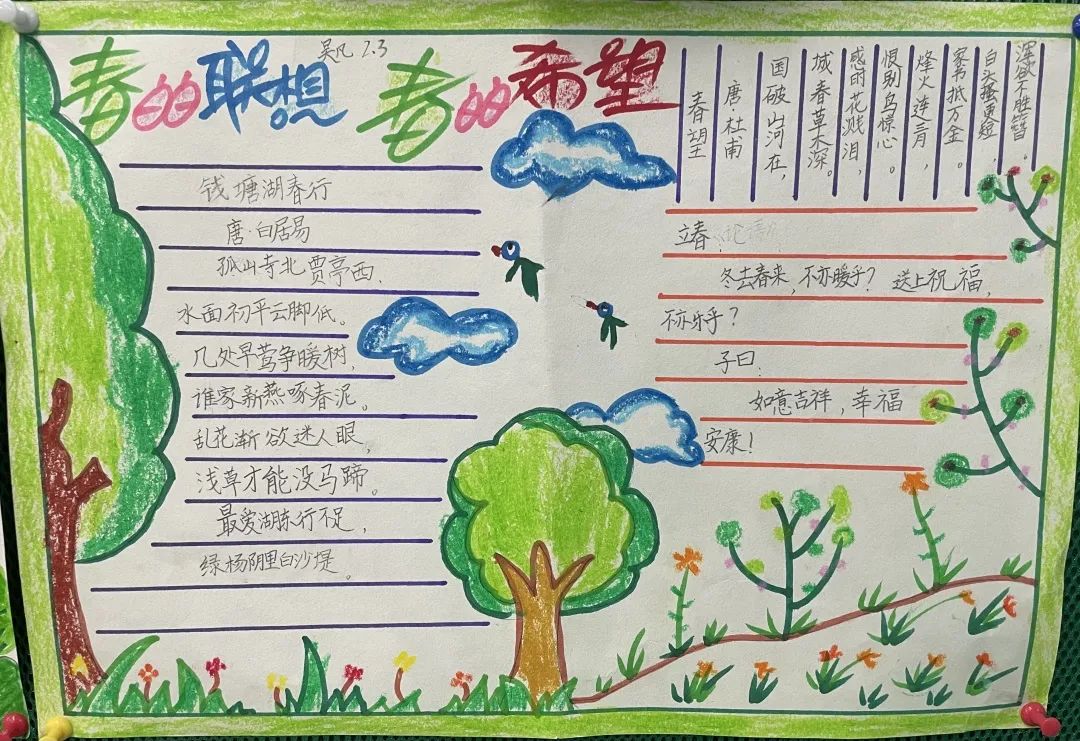 春的联想 春的希望
吴凡 2.3
钱塘湖春行
唐·白居易
孤山寺北贾亭西、
水面初平云脚低。
几处早莺争暖树,
谁家新燕啄春泥。
乱花渐欲迷人眼,
浅草才能没马蹄。
最爱湖东行不足,
绿杨阴里白沙堤。
春望
唐·杜甫
国破山河在,
城春草木深。
感时花溅泪,
恨别鸟惊心。
烽火连三月,
家书抵万金。
白头搔更短,
浑欲不胜簪。
立春
冬去春来,不亦暖乎? 送上祝福,
不亦乐乎?
子曰:
如意吉祥,幸福
安康!